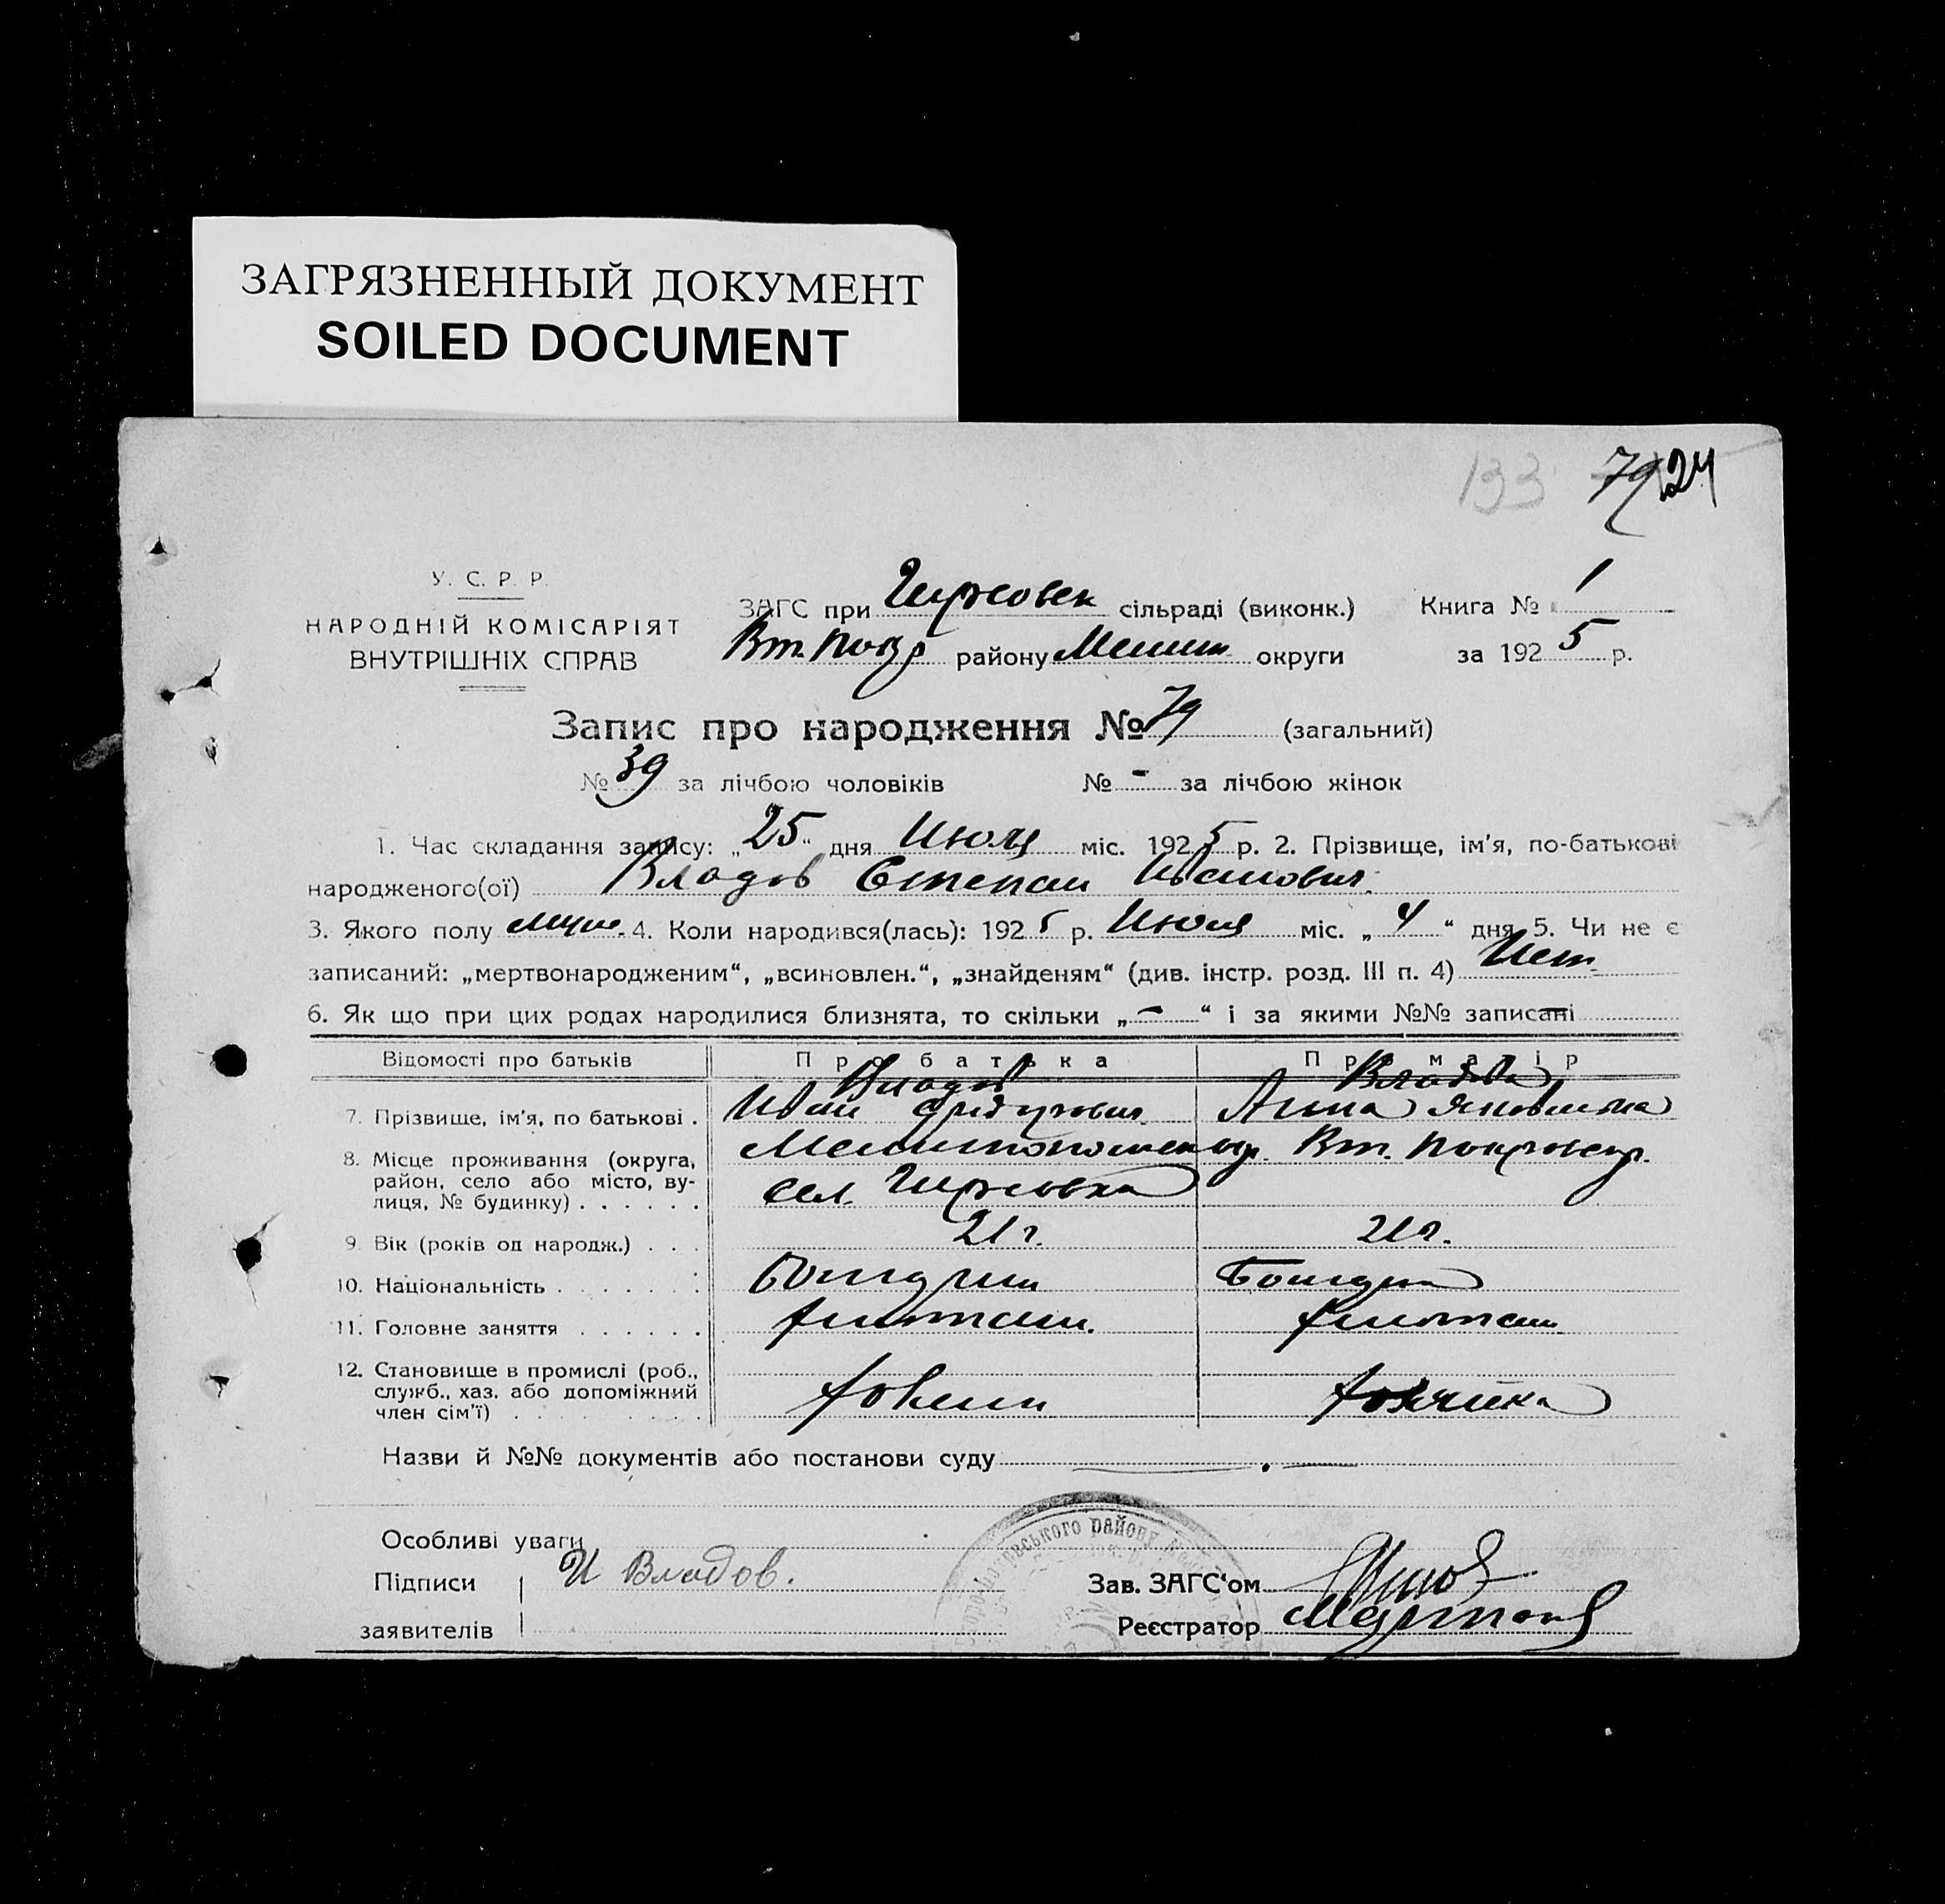 ЗАГРЯЗНЕННЫЙ ДОКУМЕНТ
SOILED DOCUMENT
133 79 24
У. С. Р. Р.
НАРОДНІЙ КОМІСАРІЯТ
ВНУТРІШНІХ СПРАВ
ЗАГС при Гирсовск сільраді (виконк.) Книга № 1
Вт. Покр району Мелит округи за 1925 р.
Запис про народження № 79 (загальний)
№ 39 за лічбою чоловіків № - за лічбою жінок
1. Час складання запису: „25“ дня Июля міс. 1925 р. 2. Прізвище, ім'я, по-батькові
народженого(ої) Владов Степан Иванович
3. Якого полу муж. 4. Коли народився(лась): 1925 р. Июля міс. „4“ дня 5. Чи не є
записаний: „мертвонародженим“, „всиновлен.“, „знайденям“ (див. інстр. розд. III п. 4) Нет
6. Як що при цих родах народилися близнята, то скільки „-“ і за якими №№ записані
Відомості про батьків Про батька Про матір
7. Прізвище, ім'я, по батькові . Владов Иван Владова Анна Яковлевна
8. Місце проживання (округа, район, село або місто, вулиця, № будинку) . . . . . . Мелитопольск окр. Вт. Покровск р.
сел. Гирсовка
9. Вік (років од народж.) . . . 21 г. 21 г.
10. Національність . . . . . . .
11. Головне заняття . . . . . .
12. Становище в промислі (роб., служб., хаз. або допоміжний член сім'ї) . . . . . . . . . хозяин хозяйка
Назви й №№ документів або постанови суду
Особливі уваги
Підписи И Владов.
заявителів
Зав. ЗАГС'ом
Реєстратор
району